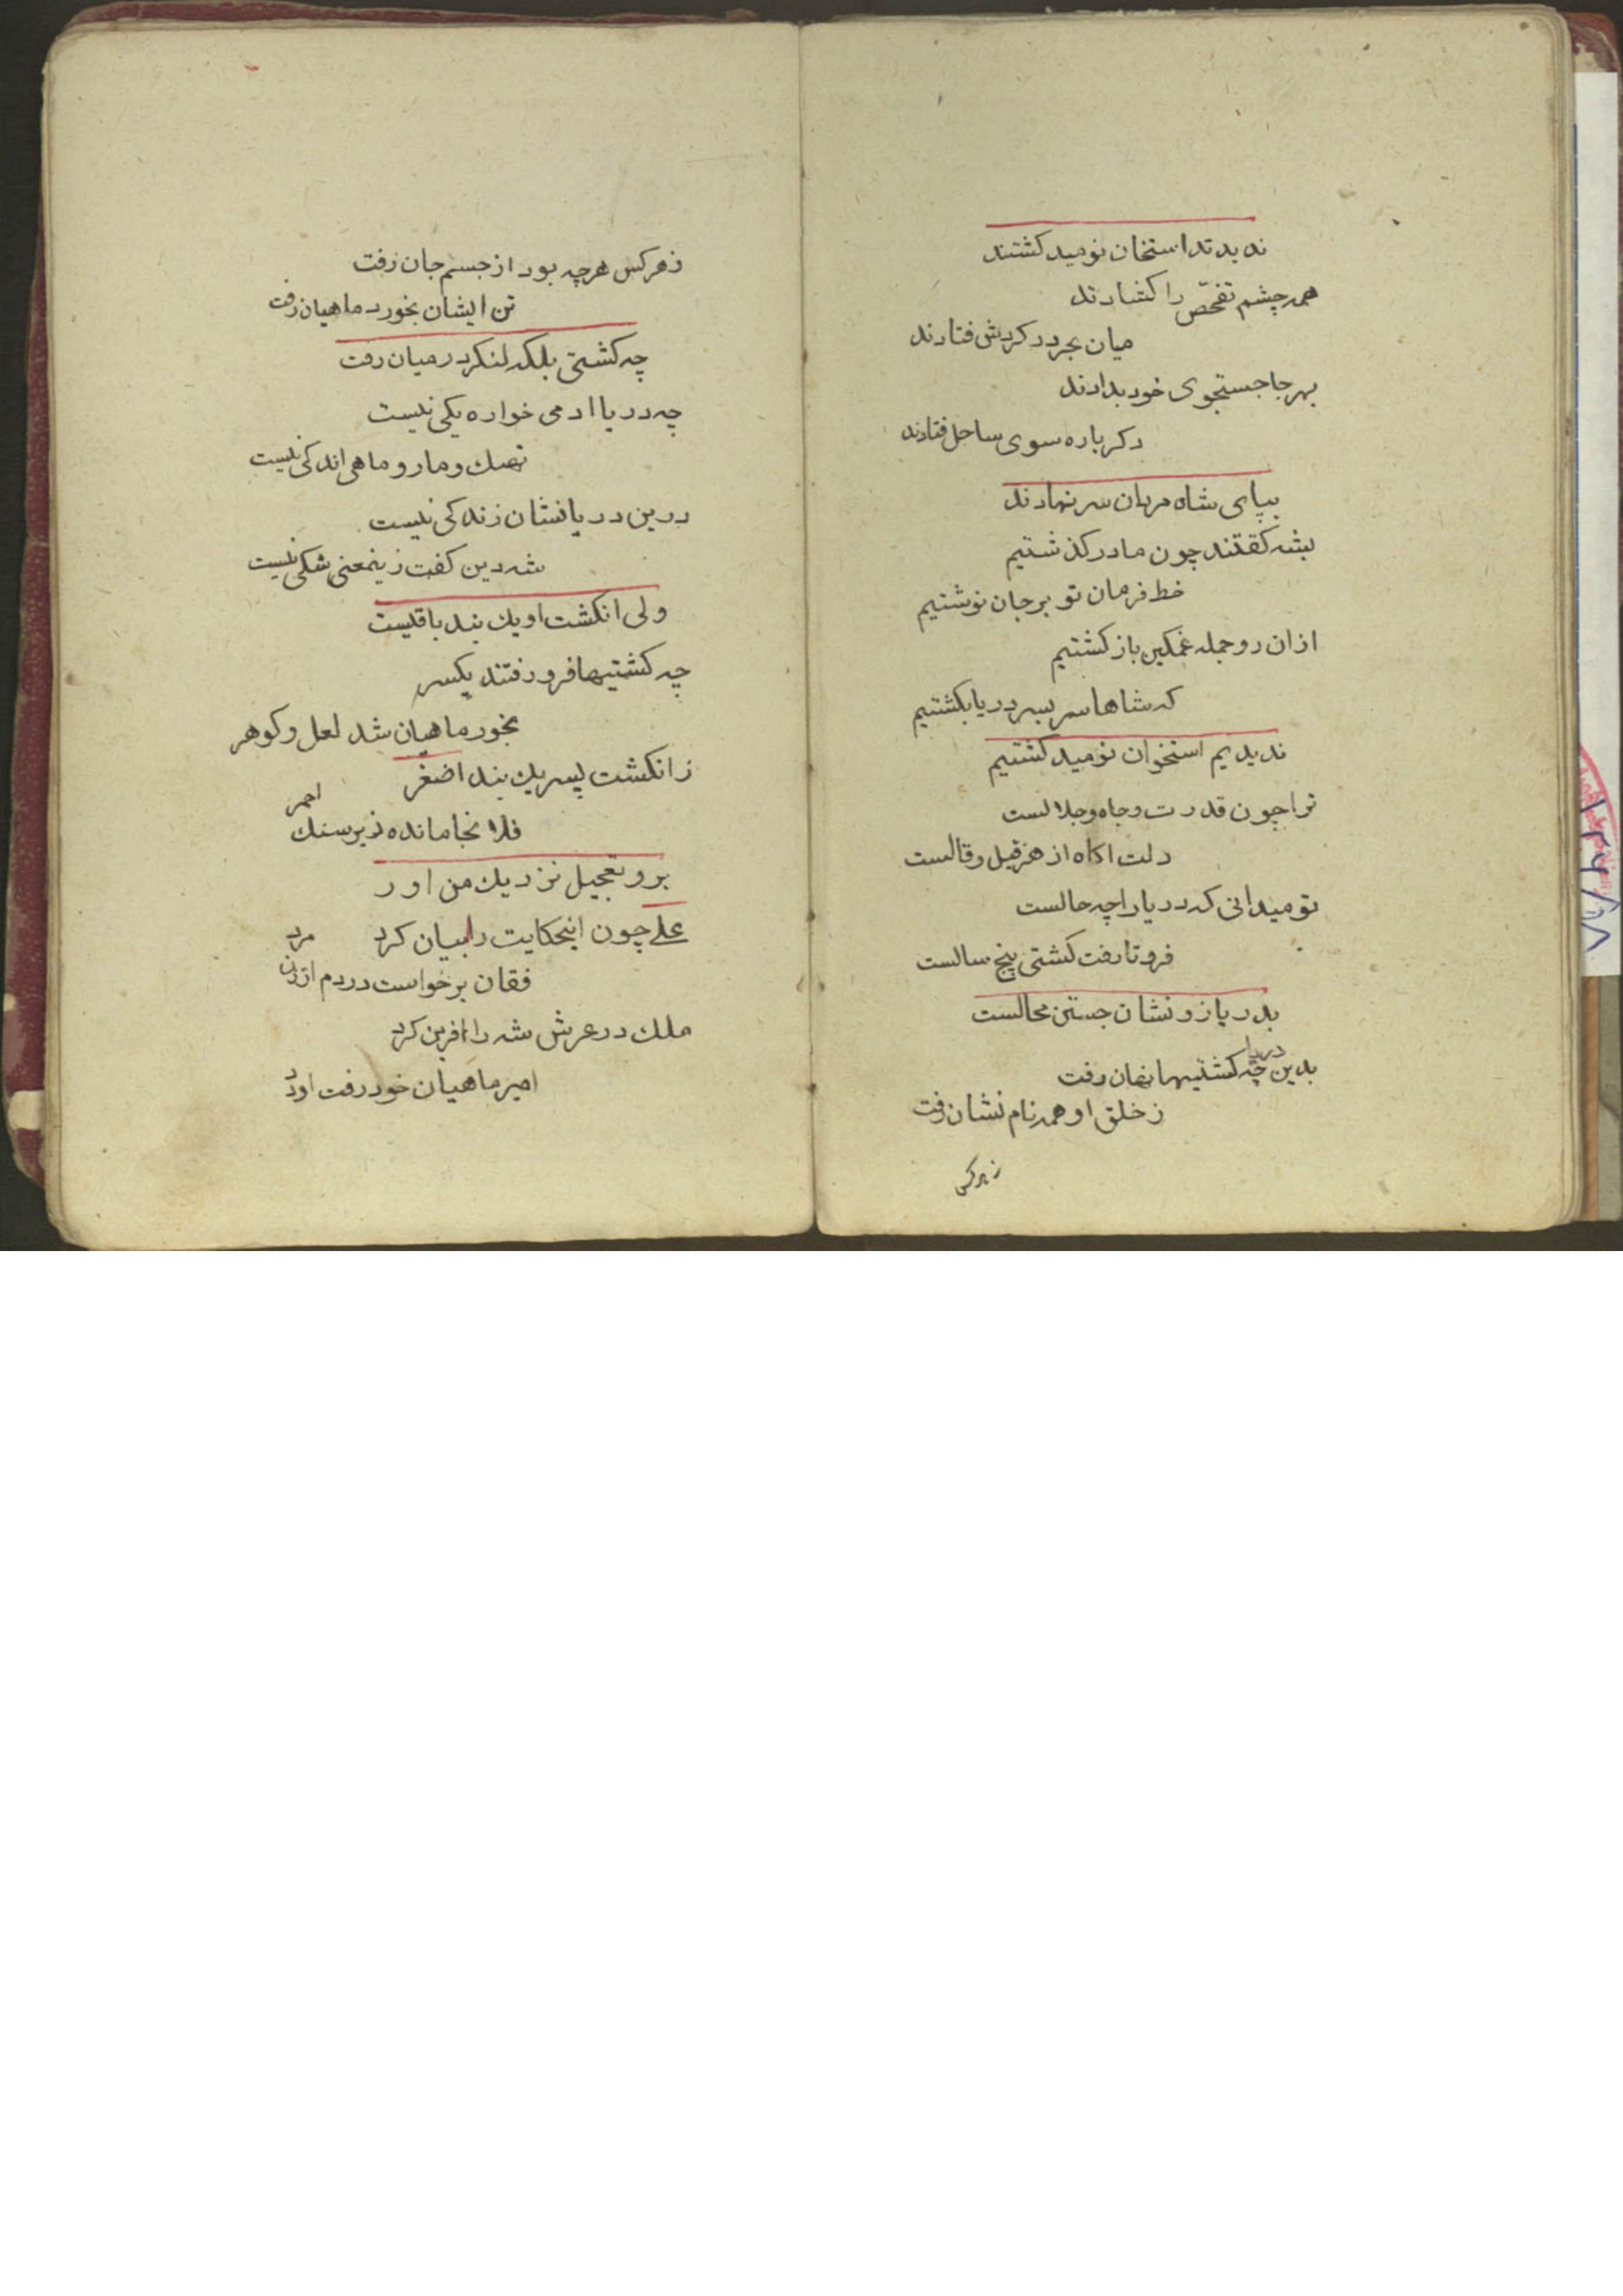 ندیدند استخان نومید کشتند
همه چشم تفحّص را کشادند
میان بحر در کردش فتادند
بهر جا جستجوی خود بدادند
دکرباره سوی ساحل فتادند
بپای شاه مردان سر نهادند
بشه کفتند چون ما در کذشتیم
خط فرمان تو بر جان نوشتیم
ازان رو جمله غمکین باز کشتیم
که شاها سر بسر دریا بکشتیم
ندیدیم استخوان نومید کشتیم
ترا چون قدرت و جاه و جلالست
دلت اکاه از هر قیل و قالست
تو میدانی که دریا را چه حالست
فرو تا رفت کشتی پنج سالست
بدریا زو نشان جستن محالست
بدین دریا چه کشتیها نهان رفت
ز خلق او همه نام نشان رفت
زهرکس
زهرکس هرچه بود از جسم جان رفت
تن ایشان بخورد ماهیان رفت
چه کشتی بلکه لنکر در میان رفت
چه دریا ادمی خواره یکی نیست
نهنك و مار و ماهی اندکی نیست
درین دریا نشان زندکی نیست
شه دین کفت زینمعنی شکی نیست
ولی انکشت او یك بند باقیست
چه کشتیها فرو رفتند یکسر
بخورد ماهیان شد لعل و کوهر
ز انکشت پسر یك بند اضغر
فلانجا مانده زیر سنك احمر
برو تعجیل نزدیك من اور
علے چون اینحکایت را بیان کرد
فقان برخواست در دم از زن مرد
ملك در عرش شه را افرین کرد
امیر ماهیان خود رفت اورد